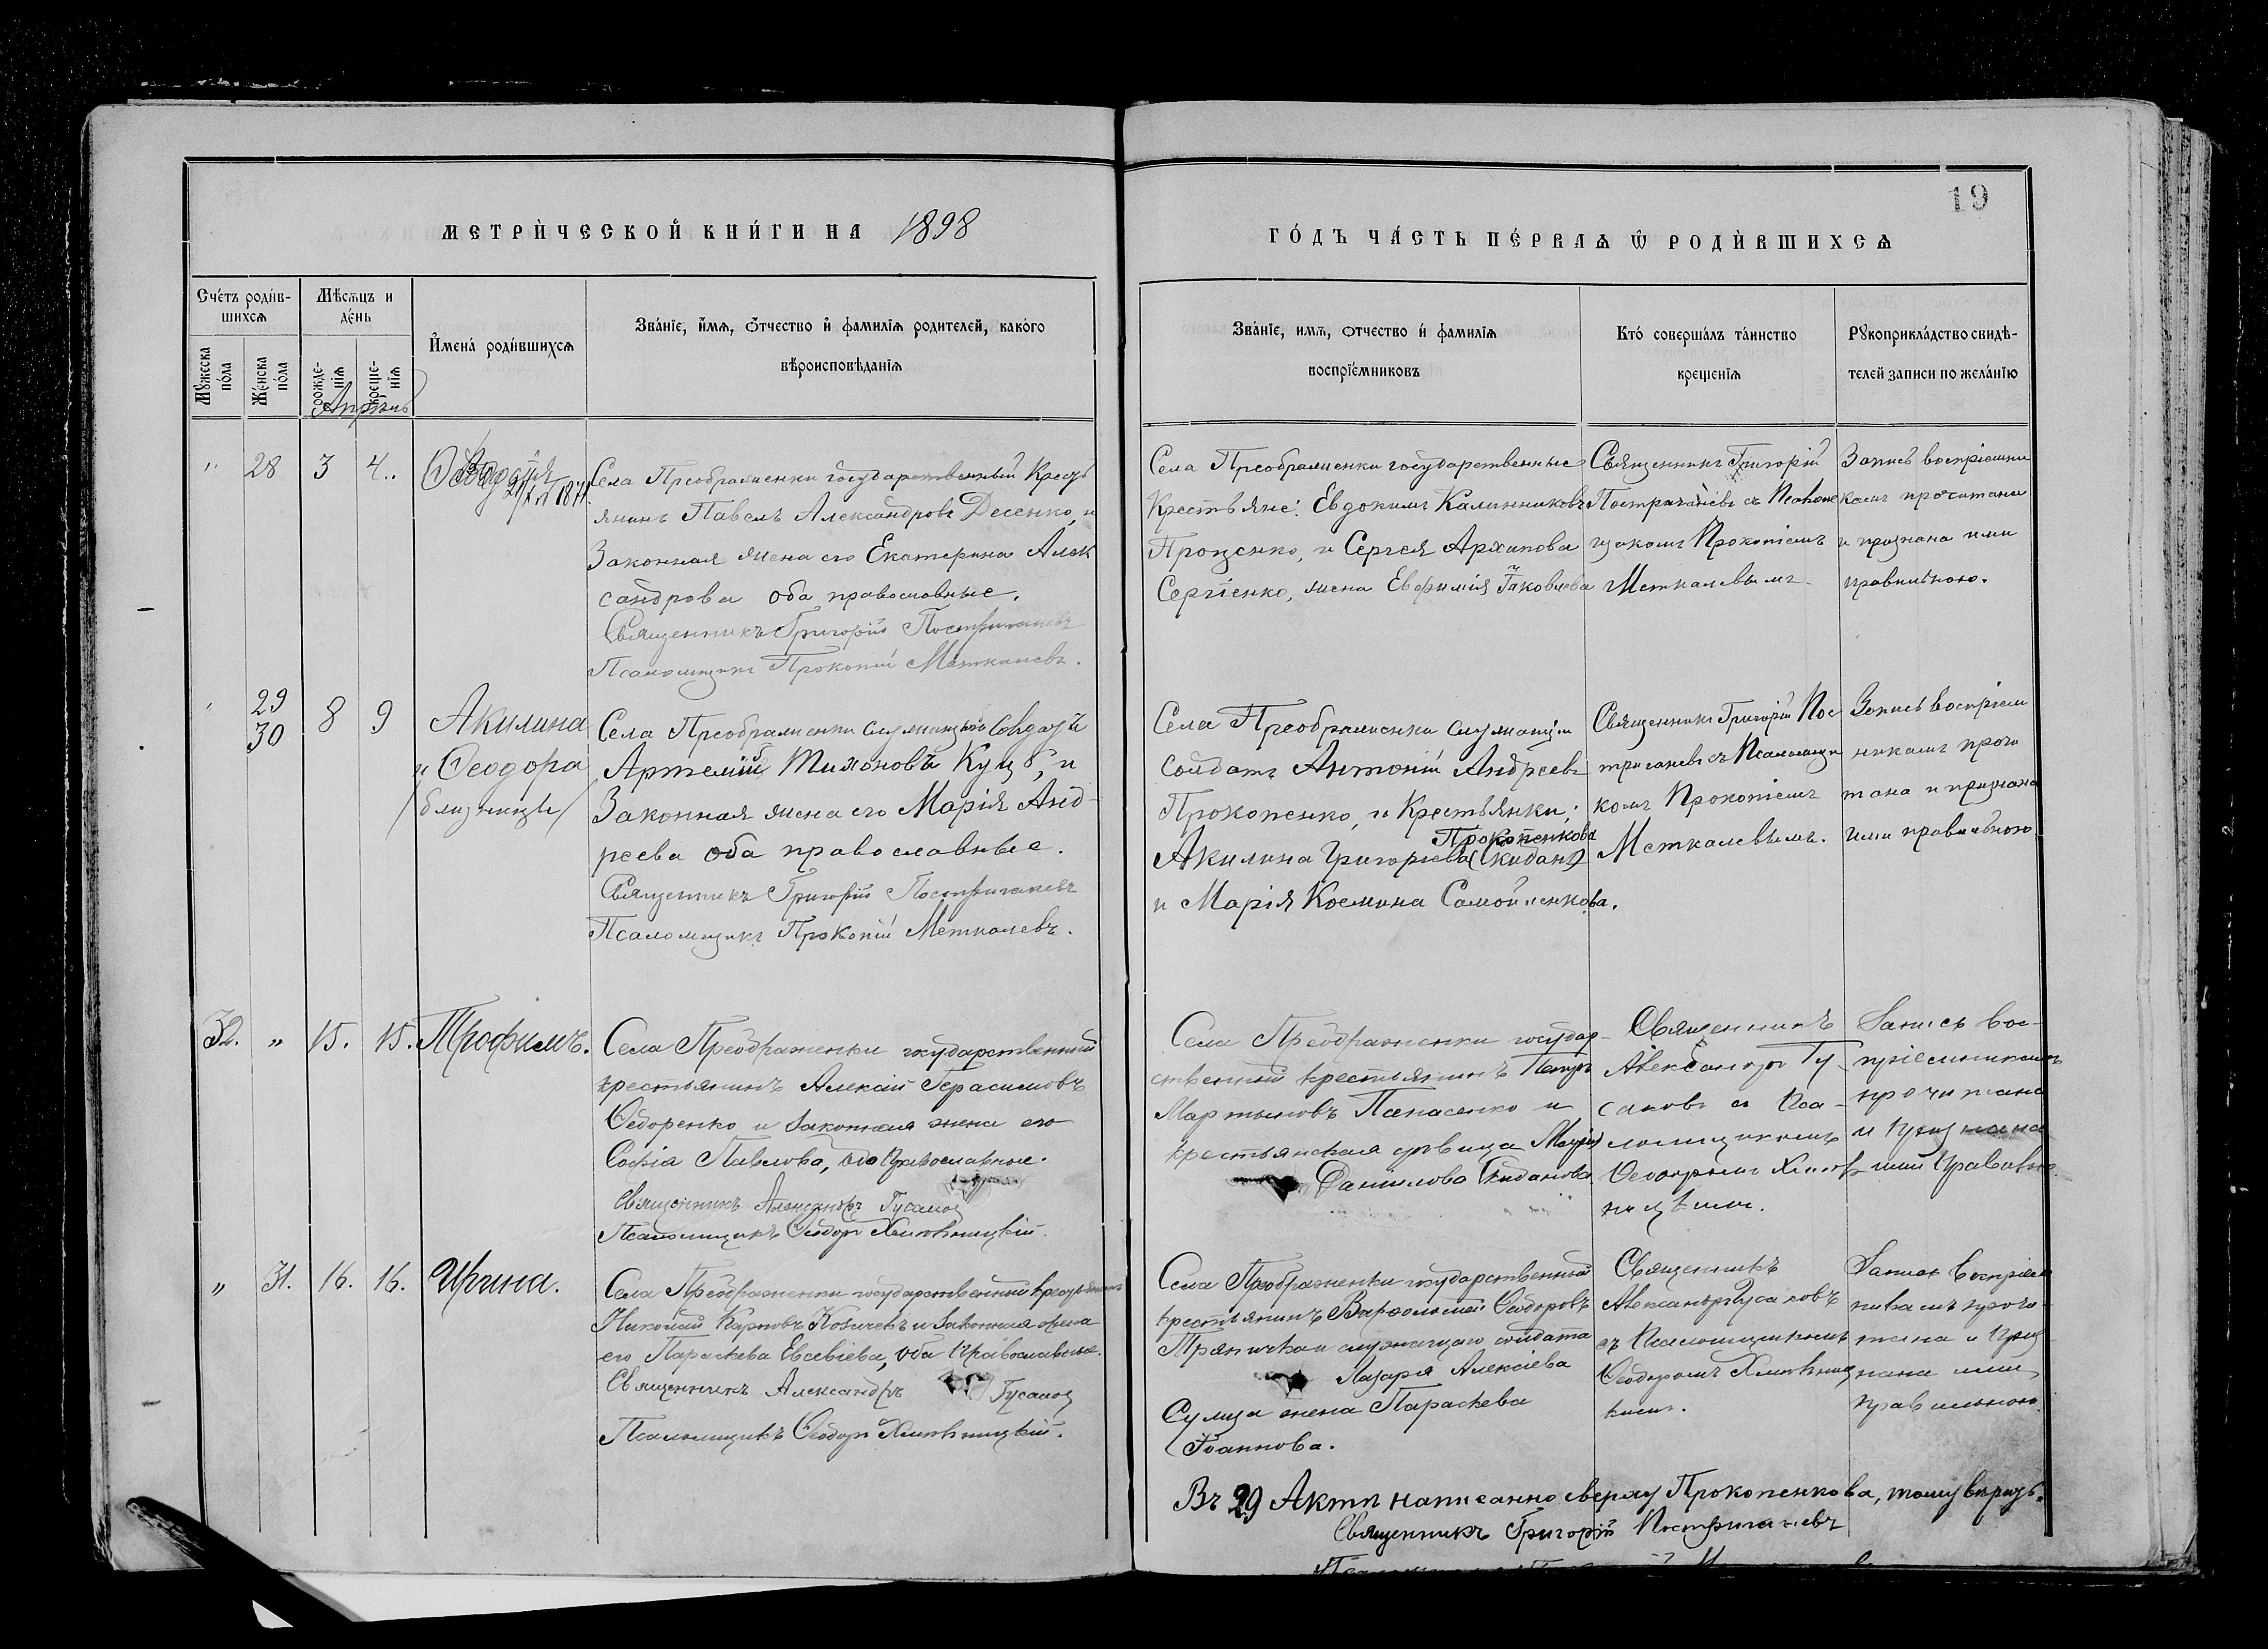 19
МЕТРИ́ЧЕСКОЙ КНИ́ГИ НА 1898
ГО́ДЪ ЧА́СТЬ ПЕ́РВАѦ Ѿ РОДИ́ВШИХСѦ
Сче́тъ роди́в-
шихсѧ
Мѣсѧцъ и
де́нь
Мꙋжеска
по́ла
Же́нска
по́ла
рожде-
нїѧ
креще-
нїѧ
И҆мена́ роди́вшихсѧ
Зва́нїе, и҆́мѧ, ѻ҆́тчество и҆ фами́лїѧ роди́телей, како́го
вѣроисповѣ́данїѧ
Зва́нїе, имѧ, ѻтчество и҆ фами́лїѧ
воспрїе́мниковъ
Кто́ соверша́лъ та́инство
креще́нїѧ
Рꙋкоприкла́дство свидѣ-
телей записи по жела́нїю
Апрѣль
" 28 3 4..
Села Преображенки государственный Кресть
янинъ Павелъ Александровъ Десенко, и
Законная жена его Екатерина Алек
сандрова оба православные.
Священникъ Григорій Постриганевъ
Псаломщикъ Прокопій Меткалевъ.
Села Преображенки государственные
Крестьяне: Евдокимъ Калинниковъ
Проценко, и Сергея Архипова
Сергіенко, жена Евфимія Іаковлева
Священникъ Григорій
Постриганевъ съ Псалом
щикомъ Прокопіемъ
Меткалевымъ.
Запись воспріемни
камъ прочитана
и признана ими
правильною.
29
30 8 9
Акилина
и Ѳеодора
/близнецы/
Села Преображенки служащій Солдатъ
Артемій Тихоновъ Куцъ, и
Законная жена его Марія Анд-
реева оба православные.
Священникъ Григорій Постриганевъ
Псаломщикъ Прокопій Меткалевъ.
Села Преображенки служащій
Солдатъ Антоній Андреевъ
Прокопенко, и Крестьянки:
Прокопенкова
Акилина Григорьева (Кидань)
и Марія Космина Самойленкова.
Священникъ Григорій Пос
триганевъ съ Псаломщи
комъ Прокопіемъ
Меткалевымъ.
Запись воспріем
никамъ прочи
тана и признана
ими правильною
32. " 15. 15. Трофимъ.
Села Преображенки государственный
крестьянинъ Алексій Герасимовъ
Ѳедоренко и законная жена его
Софія Павлова, оба Православные.
Священникъ Александръ Гусаковъ
Псаломщикъ Ѳеодоръ Хмѣльницкій.
Села Преображенки государ-
ственный крестьянинъ Петръ
Мартыновъ Панасенко и
крестьянская дѣвица Марія
Даніилова Киданова
Священникъ
Александръ Гу
саковъ съ Пса-
ломщикомъ
Ѳеодоромъ Хмѣль
ницкимъ.
Запись вос-
пріемникамъ
прочитана
и признана
ими Правильн.
" 31. 16. 16. Ирина.
Села Преображенки государственный крестьянинъ
Николай Карповъ и законная жена
его Параскева Евсевіева, оба Православные.
Священникъ Александръ Гусаковъ
Псаломщикъ Ѳеодоръ Хмѣльницкій.
Села Преображенки государственный
крестьянинъ Варѳоломей Ѳеодоровъ
служащаго солдата
Лазаря Алексіева
Сулица жена Параскева
Іоаннова.
Священникъ
Александръ Гусаковъ
съ Псаломщикомъ
Ѳеодоромъ Хмѣльниц
кимъ.
Запись воспріем
никамъ прочи-
тана и приз
нана ими
правильною.
Въ 29 Актѣ написанно сверху Прокопенкова, тому вѣрить.
Священникъ Григорій Постриганевъ